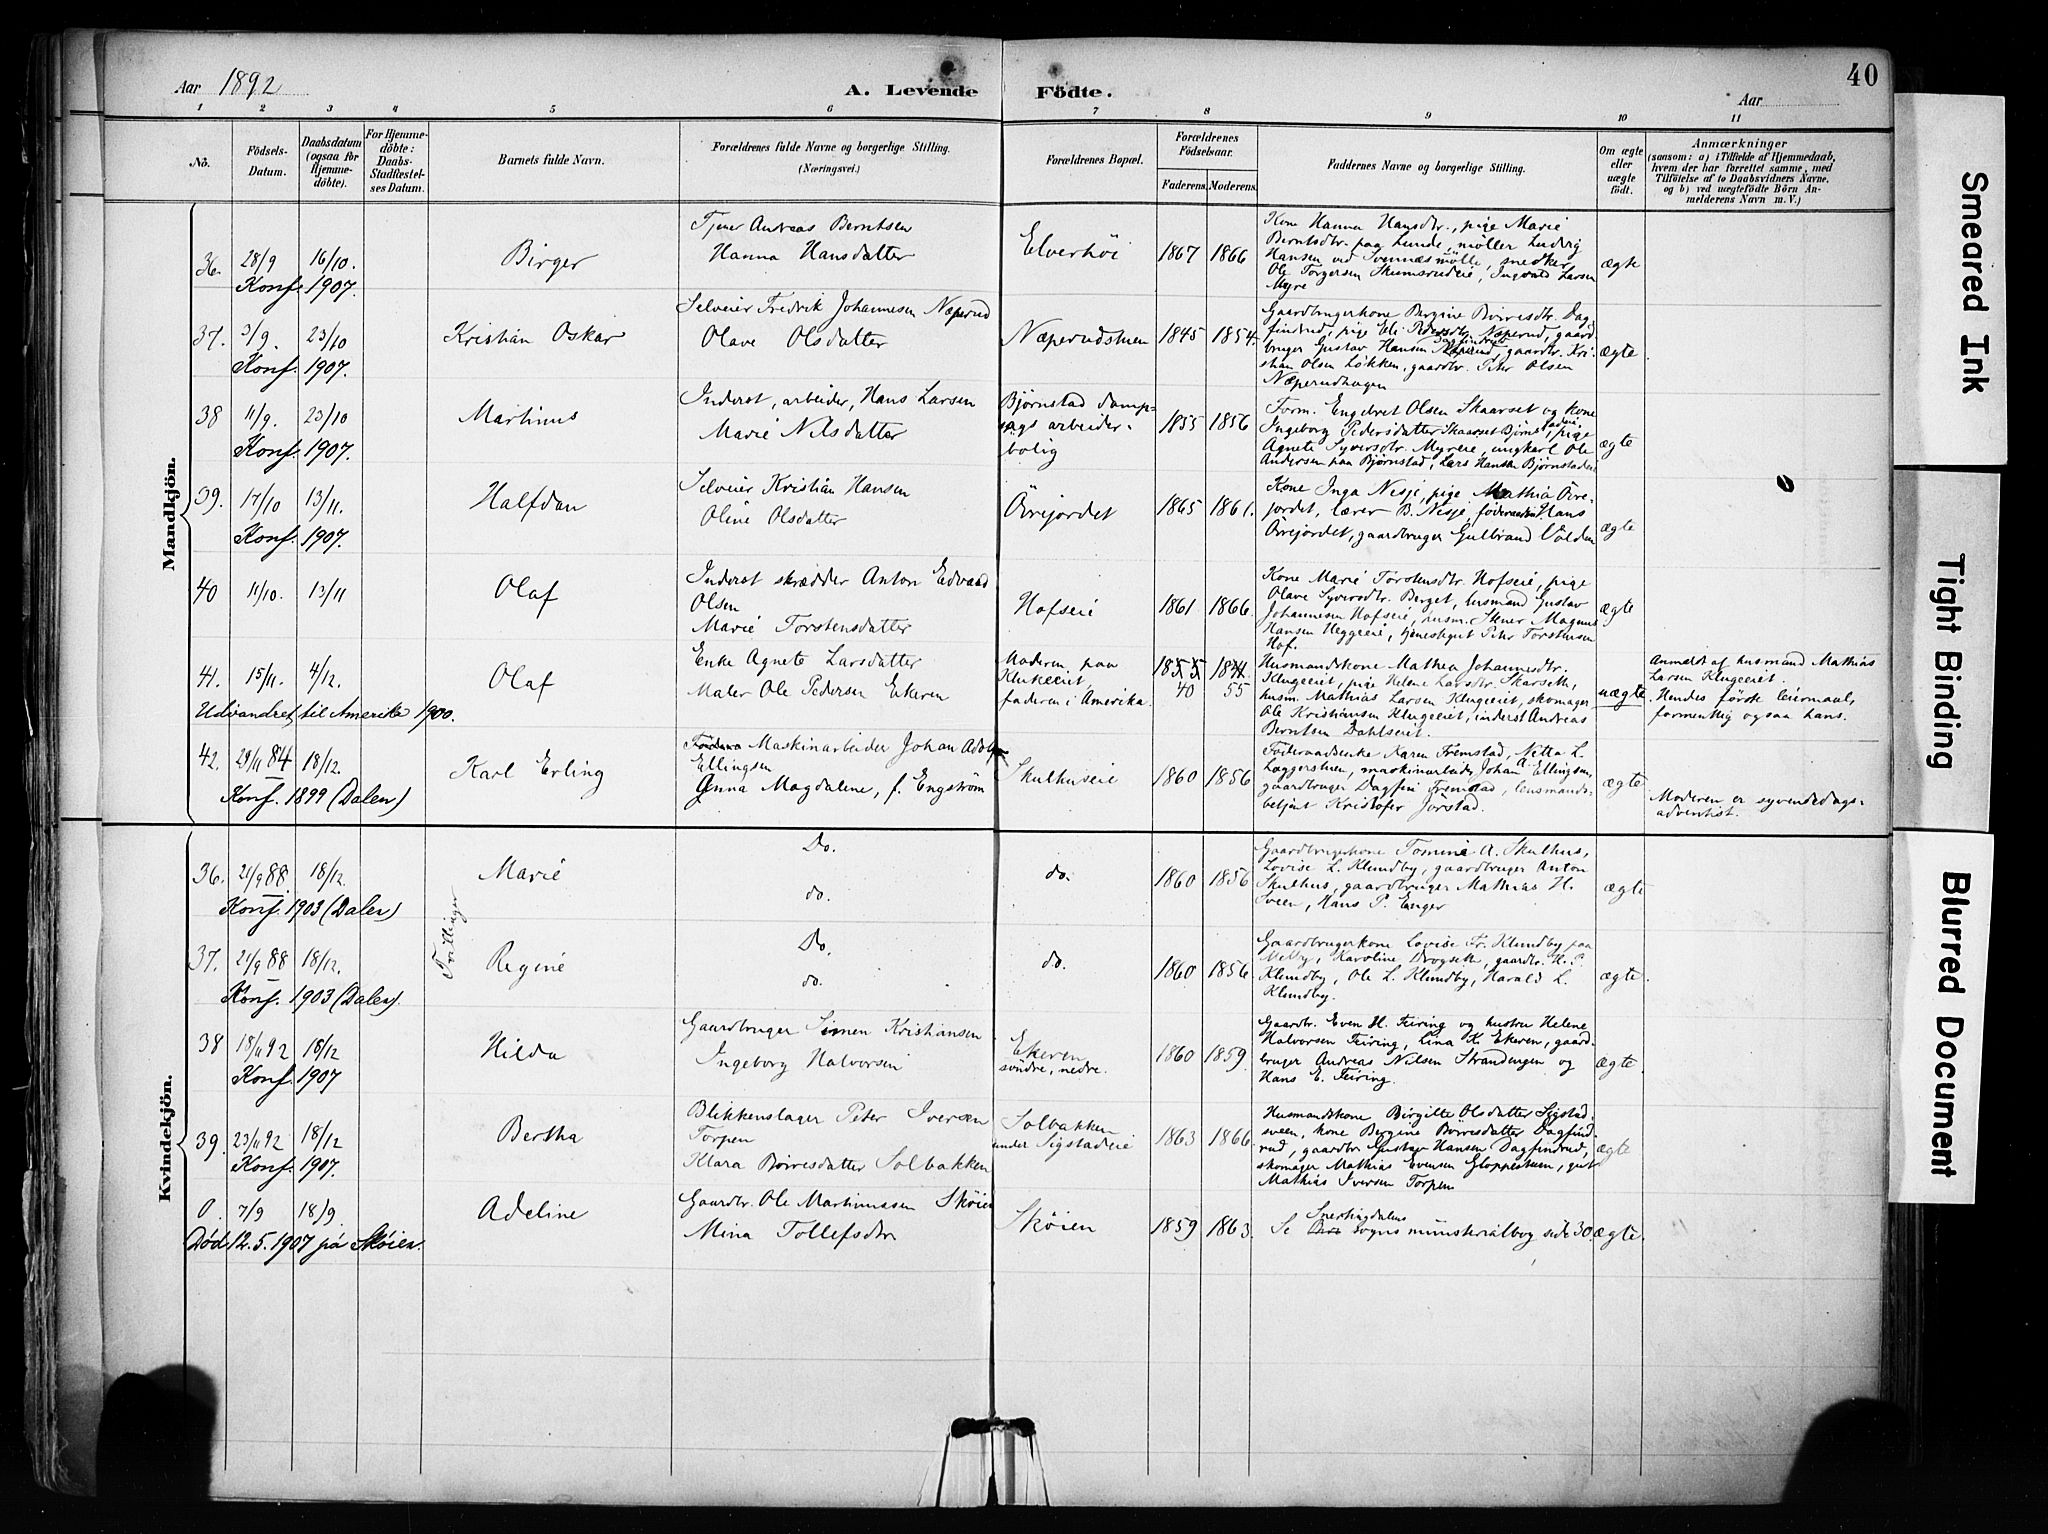 Aar 1892
A. Levende Födte.
Aar
40
1 2 3 4 5 6 7 8 9 10 11
No.
Födsels-Datum.
Daabsdatum (ogsaa for Hjemmedöbte).
For Hjemmedöbte: Daabs-Stadfæstelses Datum.
Barnets fulde Navn.
Forældrenes fulde Navne og borgerlige Stilling.
(Næringsvei.)
Forældrenes Bopæl.
Forældrenes Födselsaar.
Faderens. Moderens.
Faddernes Navne og borgerlige Stilling.
Om ægte eller uægte födt.
Anmærkninger
(saasom: a) i Tilfælde af Hjemmedaab,
hvem der har forrettet samme, med
Tilföielse af to Daabsvidners Navne,
og b) ved uægtefödte Börn Anmelderens Navn m. V.)
Mandkjön.
36. 28/9 16/10. Birger
Konf. 1907.
Tjener Andreas Berntsen
Hanna Hansdatter
Elverhöi 1867 1866
Kone Hanna Hansdtr., pige Marie
Berntsdtr. paa Lunde, möller Ludvig
Hansen ved Svennæsmölle, snedker
Ole Torgersen Skumsrudeie, Ingvald Larsen
Myre
ægte
37. 3/9. 23/10 Kristian Oskar
Konf. 1907.
Selveier Fredrik Johannesen Næperud
Olave Olsdatter
Næperudstuen 1845 1854.
Gaardbrugerkone Bergine Börresdtr. Dag
findrud, pige Eli Pedersdtr. Næperud, gaard
bruger Gustav Hansen Dagfindrud, gaardbr. Kri-
stian Olsen Løkken, gaardbr. Peter Olsen
Næperudhagen
ægte
38 11/9. 23/10 Martinus
Konf. 1907.
Inderst, arbeider, Hans Larsen
Marie Nilsdatter
Bjørnstad damp-
sags arbeider-
bolig
1855 1856
Form. Engebret Olsen Skaarset og kone
Ingeborg Pedersdatter Skaarset Bjørnstadeie, pige
Agnete Syversdtr. Myreie, ungkarl Ole
Andersen paa Bjørnstad, Lars Hansen Bjørnstadeie
ægte
39. 17/10 13/11. Halfdan
Konf. 1907.
Selveier Kristian Hansen
Oline Olsdatter
Övrejordet 1865 1861.
Kone Inga Nesje, pige Mathia Övre-
jordet, lærer B. Nesje, föderaadsm Hans
Övrejordet, gaardbruger Gulbrand Volden
ægte
40 11/10. 13/11 Olaf
Inderst skrædder Anton Edvard
Olsen
Marie Torstensdatter
Hofseie 1861 1866.
Kone Marie Torstensdtr. Hofseie, pige
Olave Syversdtr. Berget, husmand Gustav
Johannesen Hofseie, husm. Stener Magnus
Hansen Heggeeie, tjenestegut Peter Torstensen
Hof.
ægte
41. 15/11. 4/12. Olaf
Udvandret til Amerika 1900.
Enke Agnete Larsdatter
Maler Ole Pedersen Ekeren
Moderen paa
Klukeeiet,
faderen i Amerika.
1855 1841
40 55
Husmandskone Mathea Johannesdtr.
Klugeeiet, pige Helene Larsdtr. Skarseth,
husm. Mathias Larsen Klugeeiet, skomager
Ole Kristiansen Klugeeiet, inderst Andreas
Berntsen Dahlseiet.
uægte
Anmeldt af husmand Mathias
Larsen Klugeeiet.
Hendes første leiermaal,
formentlig ogsaa hans.
42. 29/11 84 18/12. Karl Erling
Konf. 1899 (Dalen)
Maskinarbeider Johan Adolf
Ellingsen
Anna Magdalene, f. Engström
Skulhuseie 1860 1856
Föderaadsenke Karen Fremstad, Netta L.
Laggerstuen, maskinarbeider Johan A. Ellingsen,
gaardbruger Dagfin Fremstad, lensmands-
betjent Kristofer Jörstad.
ægte
Moderen er syvendedags-
adventist.
Kvindekjön.
Trillinger
36. 21/9 88 18/12. Marie
Konf. 1903 (Dalen)
Do.
do.
do. 1860 1856
Gaardbrugerkone Tomine A. Skulhus,
Lovise L. Klundby, gaardbruger Anton
Skulhus, gaardbruger Mathias H.
Sveen, Hans P. Enger
ægte
37. 21/9 88 18/12. Regine
Konf. 1903 (Dalen).
Do.
do.
do. 1860 1856.
Gaardbrugerkone Lovise Fr. Klundby paa
Melby, Karoline Drogseth, gaardbr. H. P.
Klundby, Ole L. Klundby, Harald L.
Klundby.
ægte.
38 18/11 92 18/12 Hilda
Konf. 1907
Gaardbruger Simen Kristiansen
Ingeborg Halvorsen
Ekeren
söndre, nedre.
1860 1859.
Gaardbr. Even H. Feiring og hustru Helene
Halvorsen Feiring, Lina K. Ekeren, gaard-
bruger Andreas Nilsen Strandengen og
Hans E. Feiring.
ægte.
39. 23/11 92 18/12 Bertha
Konf. 1907.
Blikkenslager Peter Iversen
Torpen
Klara Börresdatter Solbakken
Solbakken
under Sigstadeie
1863 1866.
Husmandskone Birgitte Olsdatter Sigstad-
sveen, kone Bergine Börresdatter Dagfind-
rud, gaardbr Gustav Hansen Dagfindrud,
skomager Mathias Evensen Gloppestuen, gut
Mathias Iversen Torpen
ægte
0. 7/9 18/9. Adeline
Död 12.5.1907 på Sköien.
Gaardbr. Ole Martinussen Sköien
Mina Tollefsdtr
Sköien 1859 1863.
Se Snertingdalens sogns ministerialbog side 30.
ægte.
Smeared Ink
Tight Binding
Blurred Document